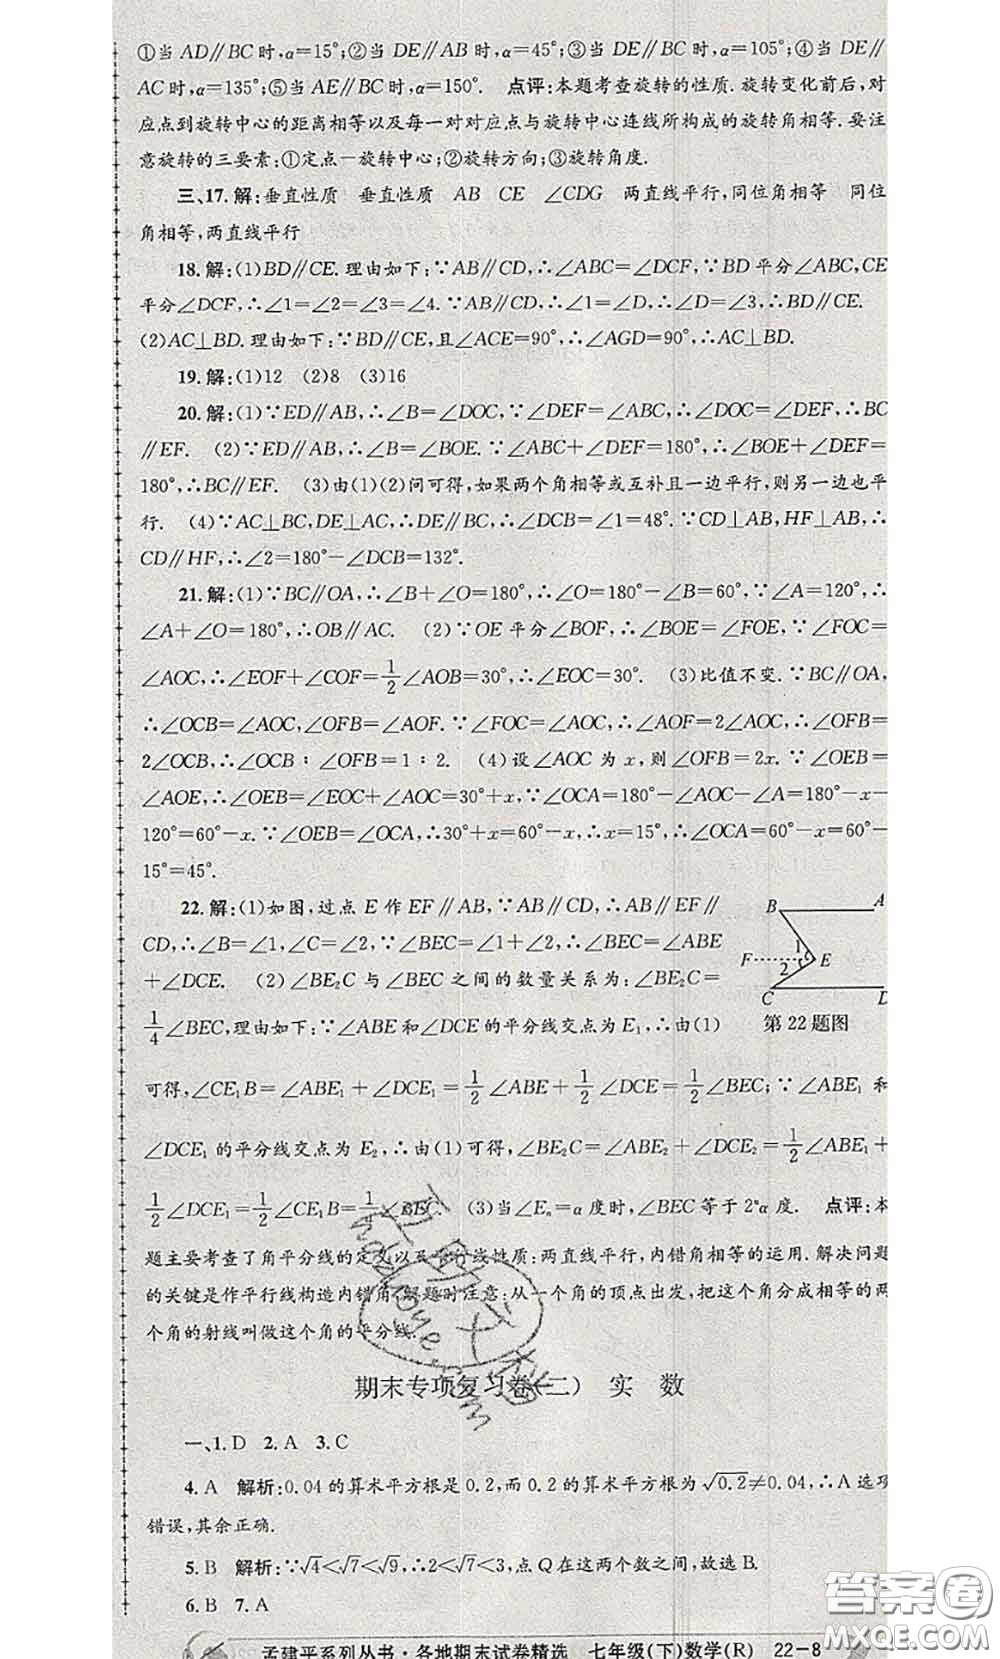 ①当 AD∥BC时,α=15°;②当 DE∥AB 时,α=45°;③当 DE∥BC 时,α=105°;④当 DE∥
AC时,α=135°;⑤当 AE∥BC时,α=150°. 点评:本题考查旋转的性质.旋转变化前后,对
应点到旋转中心的距离相等以及每一对对应点与旋转中心连线所构成的旋转角相等.要注
意旋转的三要素:①定点—旋转中心;②旋转方向;③旋转角度.
三、17.解:垂直性质 垂直性质 AB CE ∠CDG 两直线平行,同位角相等 同位
角相等,两直线平行
18.解:(1)BD∥CE.理由如下:∵AB∥CD,∴∠ABC=∠DCF,∵BD平分∠ABC,CE
平分∠DCF,∴∠1=∠2=∠3=∠4.∵AB∥CD,∴∠1=∠D,∴∠D=∠3,∴BD∥CE.
(2)AC⊥BD.理由如下:∵BD∥CE,且∠ACE=90°,∴∠AGD=90°,∴AC⊥BD.
19.解:(1)12 (2)8 (3)16
20.解:(1)∵ED∥AB,∴∠B=∠DOC,∵∠DEF=∠ABC,∴∠DOC=∠DEF,∴BC
∥EF. (2)∵ED∥AB,∴∠B=∠BOE.∵∠ABC+∠DEF=180°,∴∠BOE+∠DEF=
180°,∴BC∥EF. (3)由(1)(2)问可得,如果两个角相等或互补且一边平行,则另一边也平
行. (4)∵AC⊥BC,DE⊥AC,∴DE∥BC,∴∠DCB=∠1=48°.∵CD⊥AB,HF⊥AB,∴
CD∥HF,∴∠2=180°−∠DCB=132°.
21.解:(1)∵BC∥OA,∴∠B+∠O=180°,∴∠O=180°−∠B=60°,∵∠A=120°,∴
∠A+∠O=180°,∴OB∥AC. (2)∵OE平分∠BOF,∴∠BOE=∠FOE,∵∠FOC=
∠AOC,∴∠EOF+∠COF=1/2∠AOB=30°,∴∠EOC=30°. (3)比值不变.∵BC∥OA,
∴∠OCB=∠AOC,∠OFB=∠AOF.∵∠FOC=∠AOC,∴∠AOF=2∠AOC,∴∠OFB=
2∠OCB,∴∠OCB∶∠OFB=1∶2. (4)设∠AOC为x,则∠OFB=2x.∵∠OEB=
∠AOE,∴∠OEB=∠EOC+∠AOC=30°+x,∵∠OCA=180°−∠AOC−∠A=180°−x−
120°=60°−x.∵∠OEB=∠OCA,∴30°+x=60°−x,∴x=15°,∴∠OCA=60°−x=60°−
15°=45°.
22.解:(1)如图,过点E作EF∥AB,∵AB∥CD,∴AB∥EF∥
CD,∴∠B=∠1,∠C=∠2,∵∠BEC=∠1+∠2,∴∠BEC=∠ABE
+∠DCE. (2)∠BE₂C与∠BEC之间的数量关系为:∠BE₂C=
1/4∠BEC,理由如下:∵∠ABE和∠DCE的平分线交点为E₁,∴由(1)
可得,∠CE₁B=∠ABE₁+∠DCE₁=1/2∠ABE+1/2∠DCE=1/2∠BEC;∵∠ABE₁和
∠DCE₁的平分线交点为E₂,∴由(1)可得,∠BE₂C=∠ABE₂+∠DCE₂=1/2∠ABE₁+
1/2∠DCE₁=1/2∠CE₁B=1/4∠BEC. (3)当∠Eₙ=α度时,∠BEC等于2ⁿα度. 点评:本
题主要考查了角平分线的定义以及平行线性质:两直线平行,内错角相等的运用.解决问题
的关键是作平行线构造内错角,解题时注意:从一个角的顶点出发,把这个角分成相等的两
个角的射线叫做这个角的平分线.
B A
1
F 2 E
C D
第22题图
期末专项复习卷(二) 实 数
一、1.D 2.A 3.C
4.A 解析:0.04的算术平方根是0.2,而0.2的算术平方根为√0.2≠0.04,∴A选项
错误,其余正确.
5.B 解析:∵√4<√7<√9,∴2<√7<3,点Q在这两个数之间,故选B.
6.B 7.A
孟建平系列丛书·各地期末试卷精选 七年级(下)数学(R) 22−8
答案圈
MXQE.COM